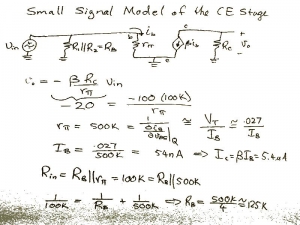 Small Signal Model of the CE Stage
Uin R₁||R₂=RB b ib rπ βib c RC Vo
e
Vo = - β RC / rπ Uin
-20 = -100 (100K) / rπ
rπ = 500K = 1 / (∂iB/∂VBE)|Q ≅ VT/IB ≅ .027/IB
IB = .027/500K = 54nA ⇒ IC=βIB=5.4uA
Rin = RB||rπ = 100K = RB||500K
1/100K = 1/RB + 1/500K ⇒ RB = 500K/4 ≈ 125K